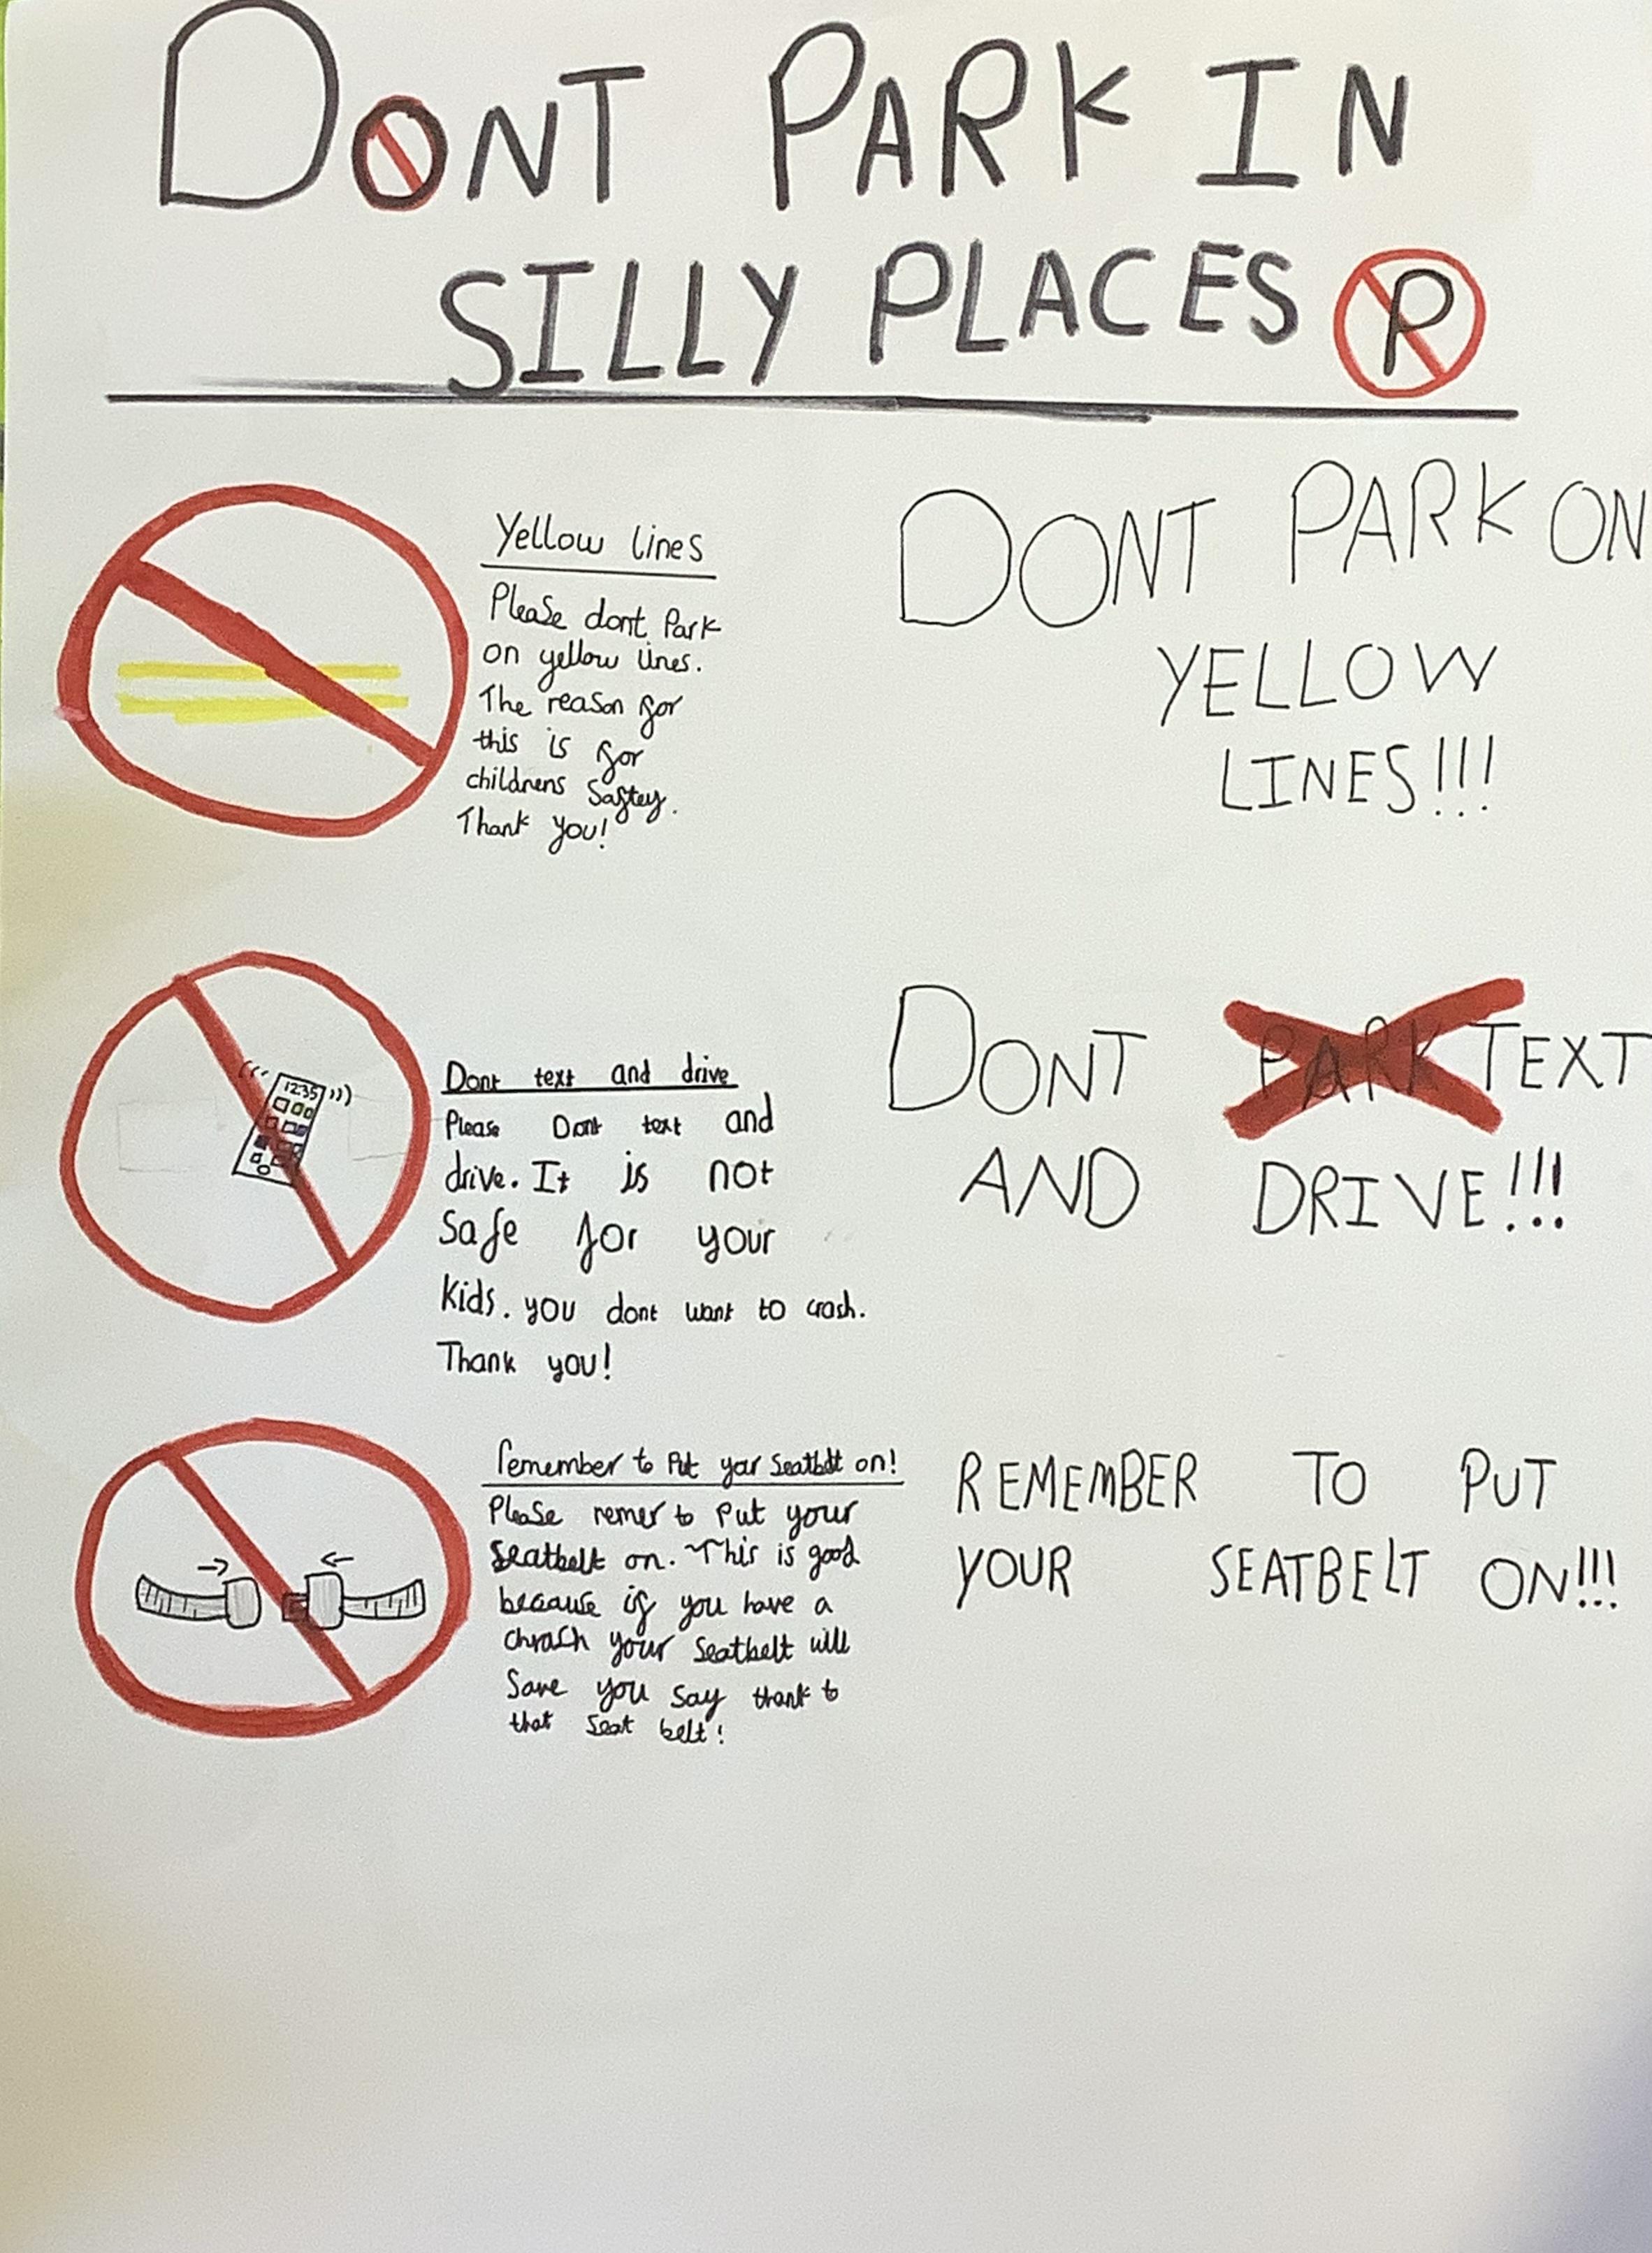 DONT PARK IN
SILLY PLACES P
Yellow lines
Please dont Park
on yellow lines.
The reason for
this is for
childrens Saftey.
Thank you!
DONT PARK ON
YELLOW
LINES!!!
12:35
Dont text and drive
Please Dont text and
drive. It is not
Safe for your
Kids. you dont want to crash.
Thank you!
DONT PARK TEXT
AND DRIVE!!!
remember to Put your Seatbelt on!
Please remer to Put your
Seatbelt on. This is good
because if you have a
chrash your Seatbelt will
Save you Say thank to
that Seat belt!
REMEMBER TO PUT
YOUR SEATBELT ON!!!